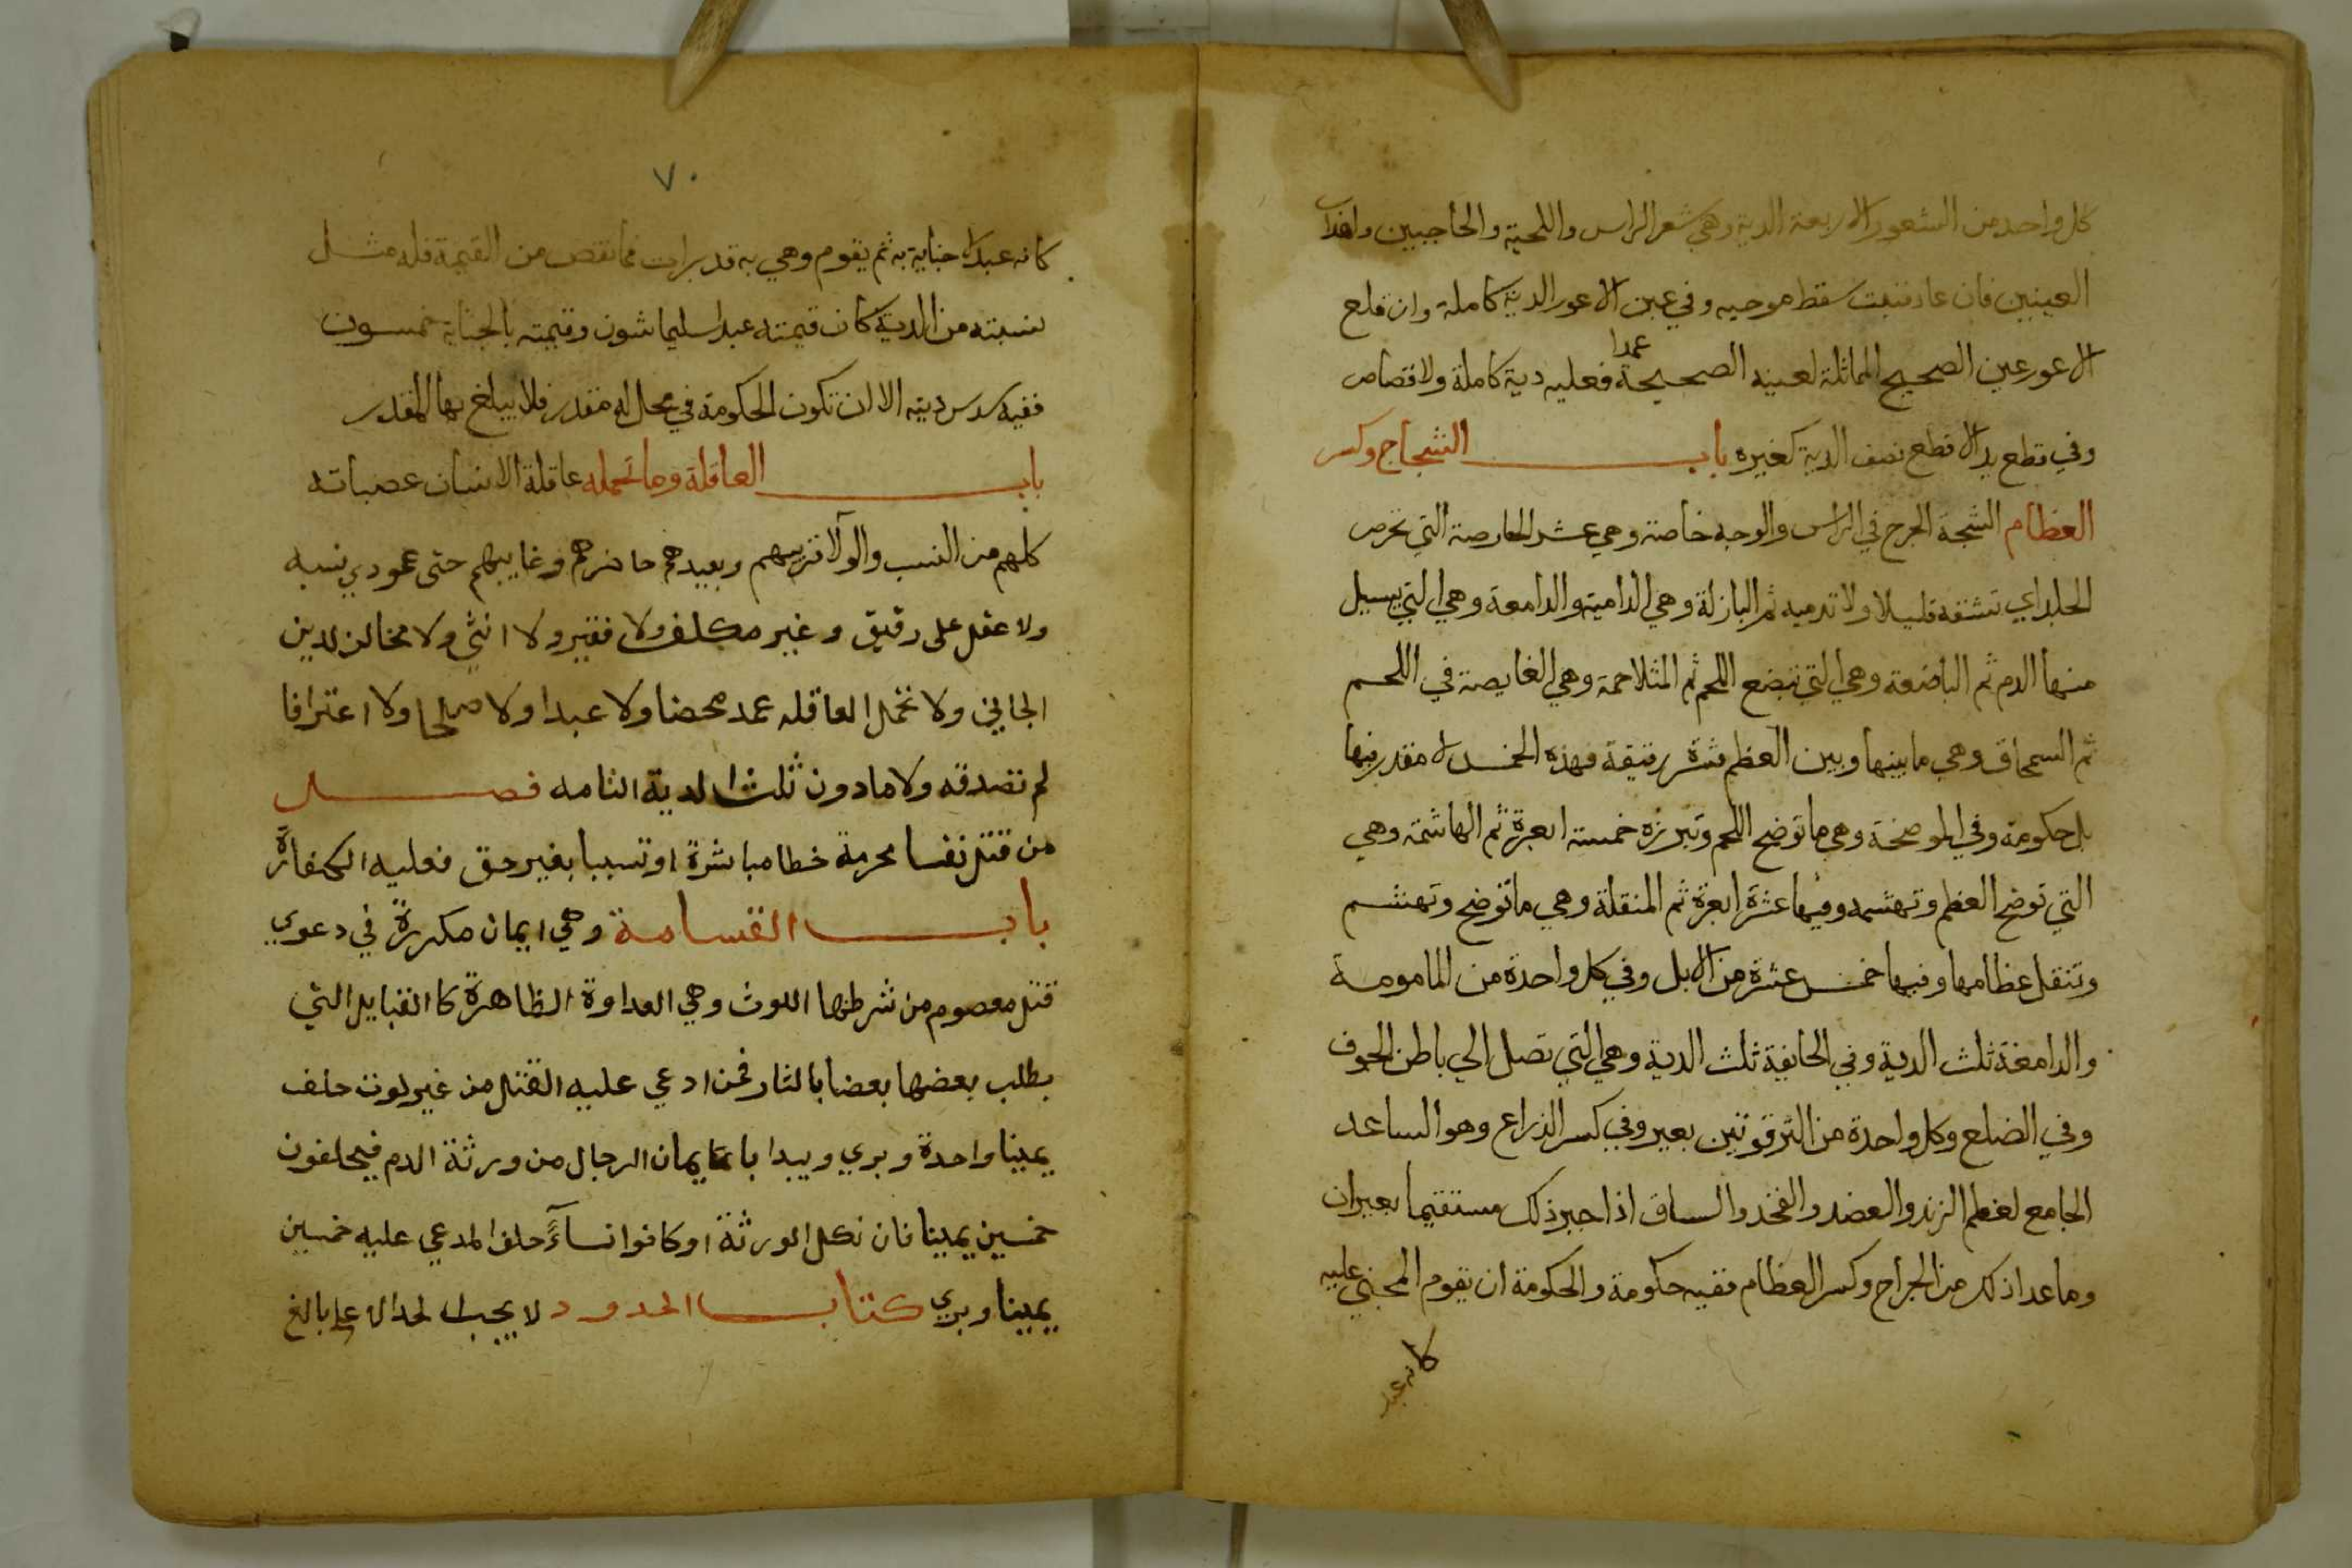 كل واحد من الشعور الاربعة الدية وهي شعر الراس واللحية والحاجبين واهداب
العينين فان عاد فنبت سقط موجبه وفي عين الاعور الدية كاملة وان قلع
الاعور عين الصحيح المماثلة لعينه الصحيحة عمدا فعليه دية كاملة ولا قصاص
وفي قطع يد الاقطع نصف الدية كغيره باب الشجاج وكسر
العظام الشجة الجرح في الراس والوجه خاصة وهي عشر الحارصة التي تحرص
الجلد اي تشقه قليلا ولا تدميه ثم البازلة وهي الدامية والدامعة وهي التي يسيل
منها الدم ثم الباضعة وهي التي تبضع اللحم ثم المتلاحمة وهي الغايصة في اللحم
ثم السمحاق وهي ما بينها وبين العظم قشرة رقيقة فهذه الخمس لا مقدر فيها
بل حكومة وفي الموضحة وهي ما توضح اللحم وتبرزه خمسة ابعرة ثم الهاشمة وهي
التي توضح العظم وتهشمه وفيها عشرة ابعرة ثم المنقلة وهي ما توضح وتهشم
وتنقل عظامها وفيها خمس عشرة من الابل وفي كل واحدة من المامومة
والدامغة ثلث الدية وفي الجايفة ثلث الدية وهي التي تصل الي باطن الجوف
وفي الضلع وكل واحدة من الترقوتين بعير وفي كسر الذراع وهو الساعد
الجامع لعظم الزند والعضد والفخد والساق اذا جبر ذلك مستقيما بعيران
وما عدا ذلك من الجراح وكسر العظام ففيه حكومة والحكومة ان يقوم المجني عليه
كانه عبد
٧٠
كانه عبد لا جناية به ثم يقوم وهي به قد برات فما نقص من القيمة فله مثل
نسبته من الدية كان قيمته عبدا سليما ستون وقيمته بالجناية خمسون
ففيه سدس ديته الا ان تكون الحكومة في محال له مقدر فلا يبلغ بها المقدر
باب العاقلة وما تحمله عاقلة الانسان عصباته
كلهم من النسب والولا قريبهم وبعيدهم حاضرهم وغايبهم حتى عمودي نسبه
ولا عقل على رقيق وغير مكلف ولا فقير ولا انثي ولا مخالف لدين
الجاني ولا تحمل العاقله عمد محضا ولا عبدا ولا صلحا ولا اعترافا
لم تصدقه ولا مادون ثلث الدية التامه فصل
من قتل نفسا محرمة خطا مباشرة او تسببا بغير حق فعليه الكفارة
باب القسامة وهي ايمان مكررة في دعوي
قتل معصوم من شرطها اللوث وهي العداوة الظاهرة كالقبايل التي
يطلب بعضها بعضا بالثار فمن ادعي عليه القتل من غير لوث حلف
يمينا واحدة وبري ويبدا بايمان الرجال من ورثة الدم فيحلفون
خمسين يمينا فان نكل الورثة او كانوا نساء حلف المدعي عليه خمسين
يمينا وبري كتاب الحدود لا يجب الحد الا علي بالغ